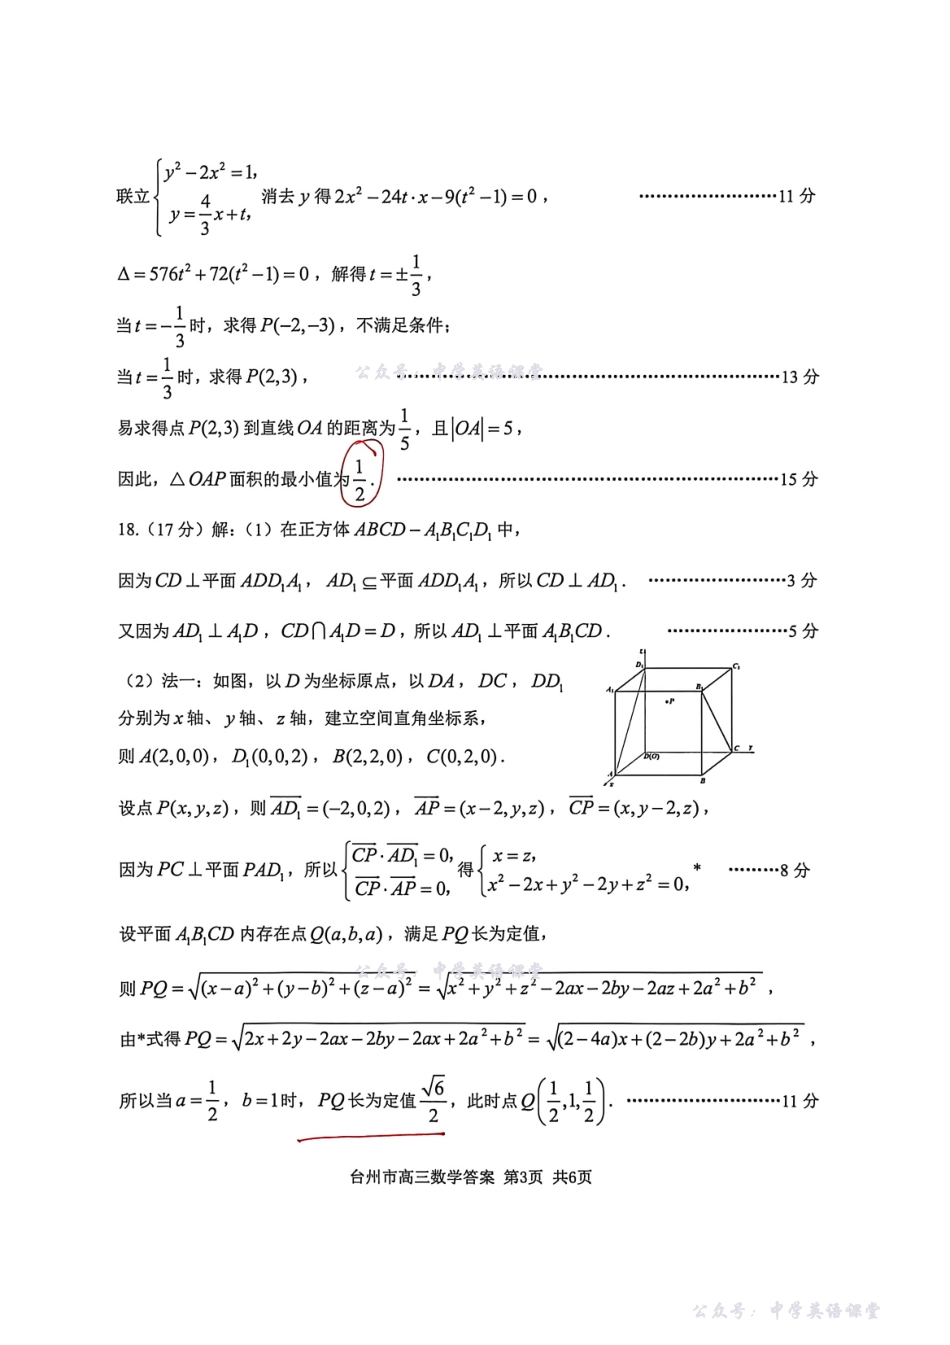 联立{y²－2x²＝1, y＝4/3x＋t, 消去 y 得 2x²－24t·x－9(t²－1)＝0， ………………………11 分
Δ＝576t²＋72(t²－1)＝0，解得 t＝±1/3，
当 t＝－1/3 时，求得 P(−2,−3)，不满足条件；
当 t＝1/3 时，求得 P(2,3)， ………………………13 分
公众号：中学英语课堂
易求得点 P(2,3) 到直线 OA 的距离为 1/5，且|OA|＝5，
因此，△OAP 面积的最小值为 1/2． ………………………15 分
18.（17 分）解：（1）在正方体 ABCD－A₁B₁C₁D₁ 中，
因为 CD⊥平面 ADD₁A₁， AD₁⊆平面 ADD₁A₁，所以 CD⊥AD₁． ………………………3 分
又因为 AD₁⊥A₁D，CD⋂A₁D＝D，所以 AD₁⊥平面 A₁B₁CD． ………………………5 分
（2）法一：如图，以 D 为坐标原点，以 DA， DC， DD₁
分别为 x 轴、 y 轴、 z 轴，建立空间直角坐标系，
则 A(2,0,0)， D₁(0,0,2)， B(2,2,0)， C(0,2,0)．
D₁ C₁ A₁ B₁ P D(O) C Y A B
设点 P(x,y,z)，则 AD₁＝(−2,0,2)， AP＝(x−2,y,z)， CP＝(x,y−2,z)，
因为 PC⊥平面 PAD₁，所以{CP·AD₁＝0, CP·AP＝0, 得{x＝z, x²－2x＋y²－2y＋z²＝0, * ………8 分
设平面 A₁B₁CD 内存在点 Q(a,b,a)，满足 PQ 长为定值，
公众号：中学英语课堂
则 PQ＝√((x−a)²＋(y−b)²＋(z−a)²)＝√(x²＋y²＋z²－2ax－2by－2az＋2a²＋b²)，
由*式得 PQ＝√(2x＋2y－2ax－2by－2ax＋2a²＋b²)＝√((2−4a)x＋(2−2b)y＋2a²＋b²)，
所以当 a＝1/2，b＝1时，PQ 长为定值 √6/2，此时点 Q(1/2,1,1/2)． ………………………11 分
台州市高三数学答案 第3页 共6页
公众号：中学英语课堂